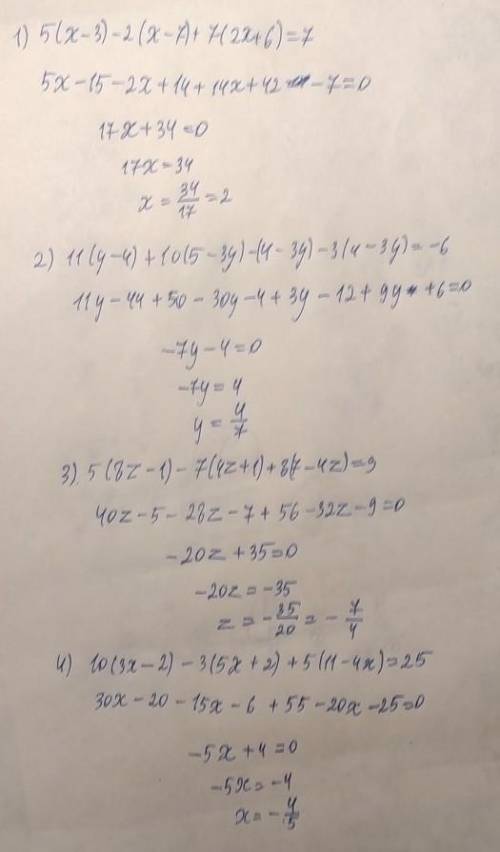 1) 5(x-3)-2(x-7)+7(2x+6)=7
5x-15-2x+14+14x+42-7=0
17x+34=0
17x=34
x=34/17=2
2) 11(y-4)+10(5-3y)-(4-3y)-3(4-3y)=-6
11y-44+50-30y-4+3y-12+9y+6=0
-7y-4=0
-7y=4
y=4/7
3) 5(8z-1)-7(4z+1)+8(7-4z)=9
40z-5-28z-7+56-32z-9=0
-20z+35=0
-20z=-35
z=-35/20=-7/4
4) 10(3x-2)-3(5x+2)+5(11-4x)=25
30x-20-15x-6+55-20x-25=0
-5x+4=0
-5x=-4
x=-4/5